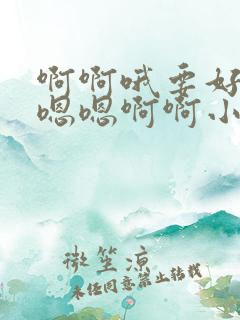 啊啊哦要好
嗯嗯啊啊小
微笙凉
未经同意禁止转载